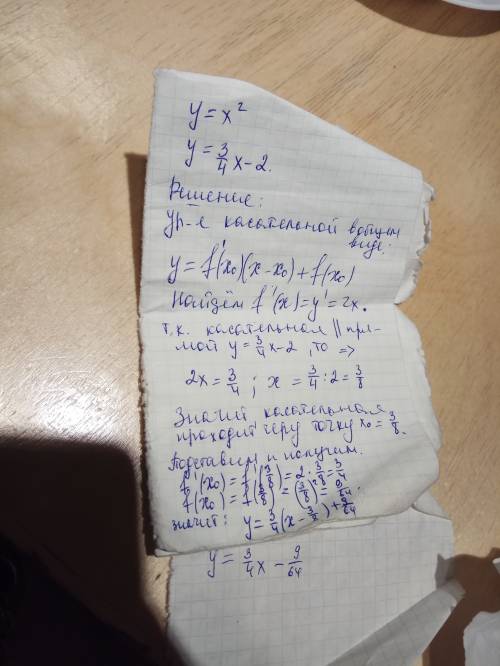 y = x²
y = 3/4 x - 2.
Решение:
Ур-е касательной в общем
виде:
y = f'(x₀)(x - x₀) + f(x₀)
Найдём f'(x) = y' = 2x.
т.к. касательная || пря-
мой y = 3/4 x - 2, то =>
2x = 3/4 ; x = 3/4 : 2 = 3/8
Значит касательная
проходит чеpу точку x₀ = 3/8.
Подставим и получим:
f'(x₀) = f'(3/8) = 2 · 3/8 = 3/4
f(x₀) = f(3/8) = (3/8)² = 9/64.
значит: y = 3/4 (x - 3/8) + 9/64
y = 3/4 x - 9/64